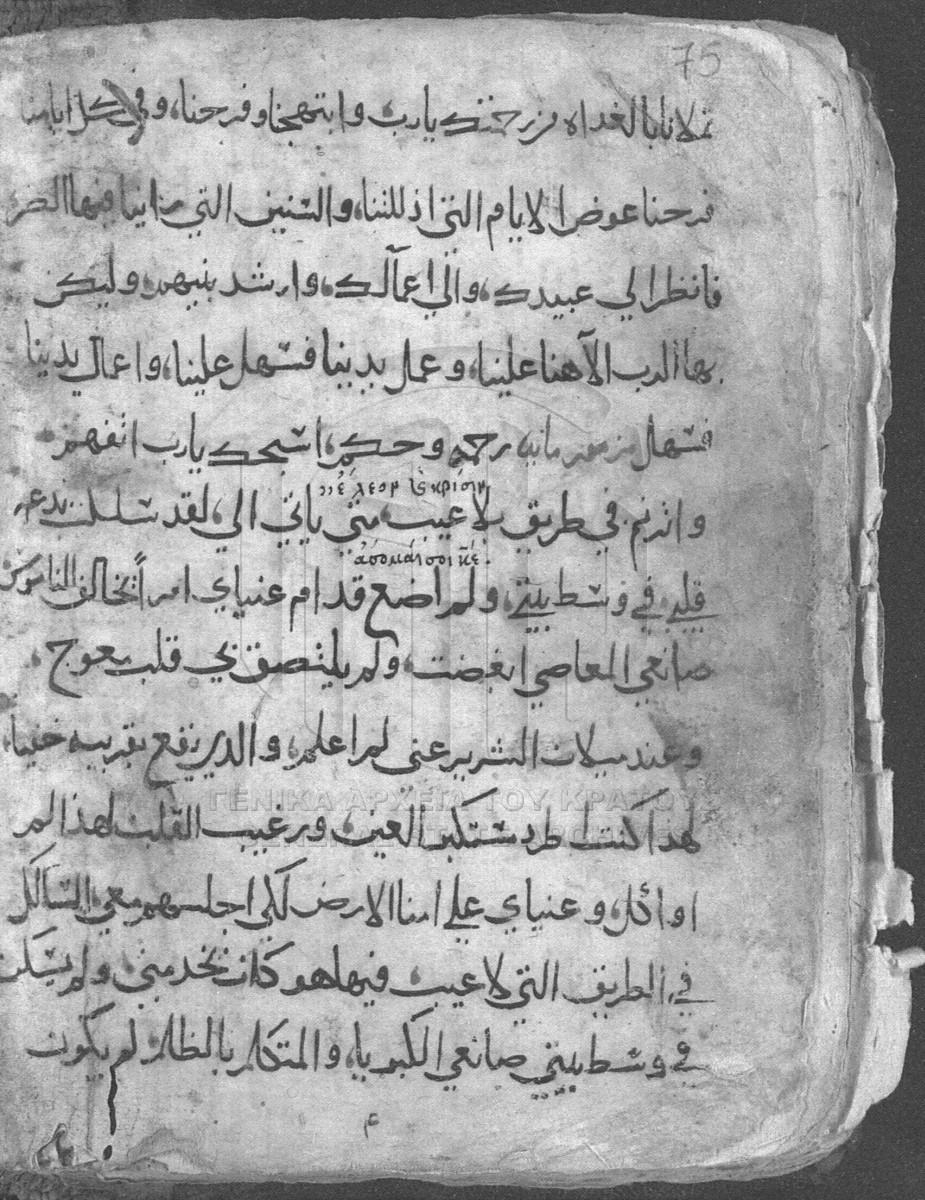 75
تملانا بالغداه من رحمتك يارب وابتهجنا وفرحنا، وفي كل ايامنا
فرحنا عوض الايام التي اذللتنا، والسنين التي راينا فيها الضر
فانظر الي عبيدك، والي اعمالك، وارشد بنيهم، وليكن
بها الرب الاهنا علينا، وعمل يدينا فسهل علينا، واعمال يدينا
فسهل مزمور مايه رحمه وحكم، اسبحك يارب اتفهم
ἔλεον καὶ κρίσιν
وارنم في طريق بلا عيب، متي ياتي الي، لقد سلكت بدعه
ἄσομαί σοι κε.
قلبي في وسط بيتي، ولم اضع قدام عنياي امراً يخالف الناموس
صانعي المعاصي ابغضت، ولم يلتصق بي قلب معوج،
وعند ميلان الشرير عني لم اعلم، والذي يقع بقريبه خفيا،
لهذا كنت اطرد مستكبر العين ورغيب القلب لهذا لم
اواكل، وعنياي علي امنا الارض لكي اجلسهم معي السالك
في الطريق التي لا عيب فيها هو كان يخدمني ولم يسكن
في وسط بيتي صانعي الكبريا، والمتكلم بالظلم لم يكون
ΓΕΝΙΚΑ ΑΡΧΕΙΑ ΤΟΥ ΚΡΑΤΟΥΣ